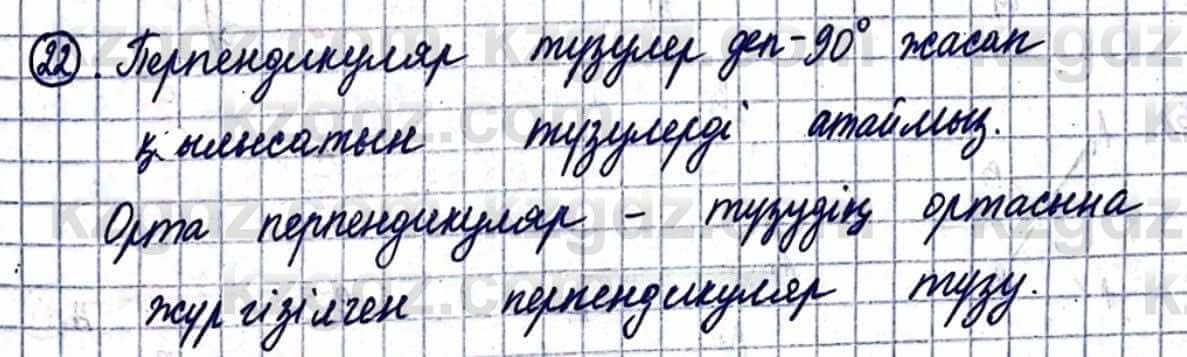 22. Перпендикуляр түзулер деп - 90° жасап
қилысатын түзулерді атаймыз.
Орта перпендикуляр - түзудің ортасына
жүргізілген перпендикуляр түзу.